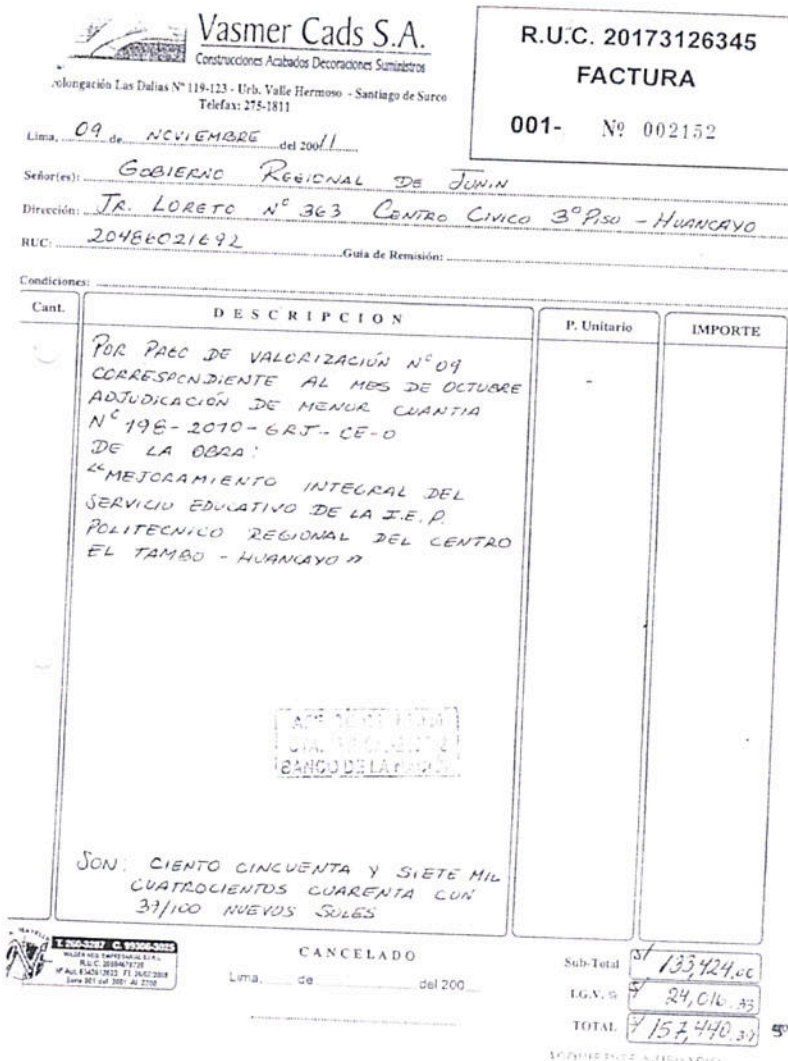 Vasmer Cads S.A.
Construcciones Acabados Decoraciones Suministros
Prolongación Las Dalias Nº 119-123 - Urb. Valle Hermoso - Santiago de Surco
Telefax: 275-1811
R.U.C. 20173126345
FACTURA
001- Nº 002152
Lima, 09 de NOVIEMBRE del 2001/1
Señor(es): GOBIERNO REGIONAL DE JUNIN
Dirección: JR. LORETO Nº 363 CENTRO CIVICO 3º PISO - HUANCAYO
RUC: 20486021692 Guía de Remisión:
Condiciones:
Cant. DESCRIPCION P. Unitario IMPORTE
POR PAGO DE VALORIZACIÓN Nº 09
CORRESPONDIENTE AL MES DE OCTUBRE
ADJUDICACIÓN DE MENOR CUANTIA
Nº 198-2010-GRJ-CE-O
DE LA OBRA:
"MEJORAMIENTO INTEGRAL DEL
SERVICIO EDUCATIVO DE LA I.E.P.
POLITECNICO REGIONAL DEL CENTRO
EL TAMBO - HUANCAYO"
SON: CIENTO CINCUENTA Y SIETE MIL
CUATROCIENTOS CUARENTA CON
39/100 NUEVOS SOLES
T. 260-3287 C. 99306-3025
CANCELADO
Lima, de del 200
Sub-Total S/ 133,424.06
I.G.V. % S/ 24,016.33
TOTAL S/ 157,440.39